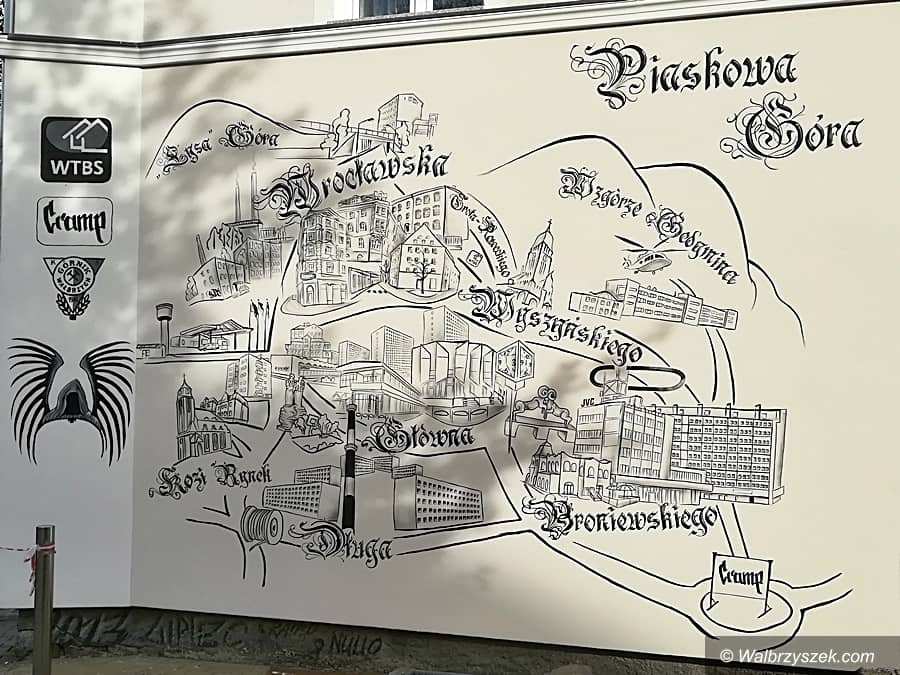 Piaskowa
Góra
WTBS
Cramp
GÓRNIK
WAŁBRZYCH
"Łysa" Góra
Wrocławska
Wzgórze Gedymina
Wyszyńskiego
JVC
Główna
Kozi Rynek
Broniewskiego
Długa
Cramp
2013
NULLO
© Walbrzyszek.com